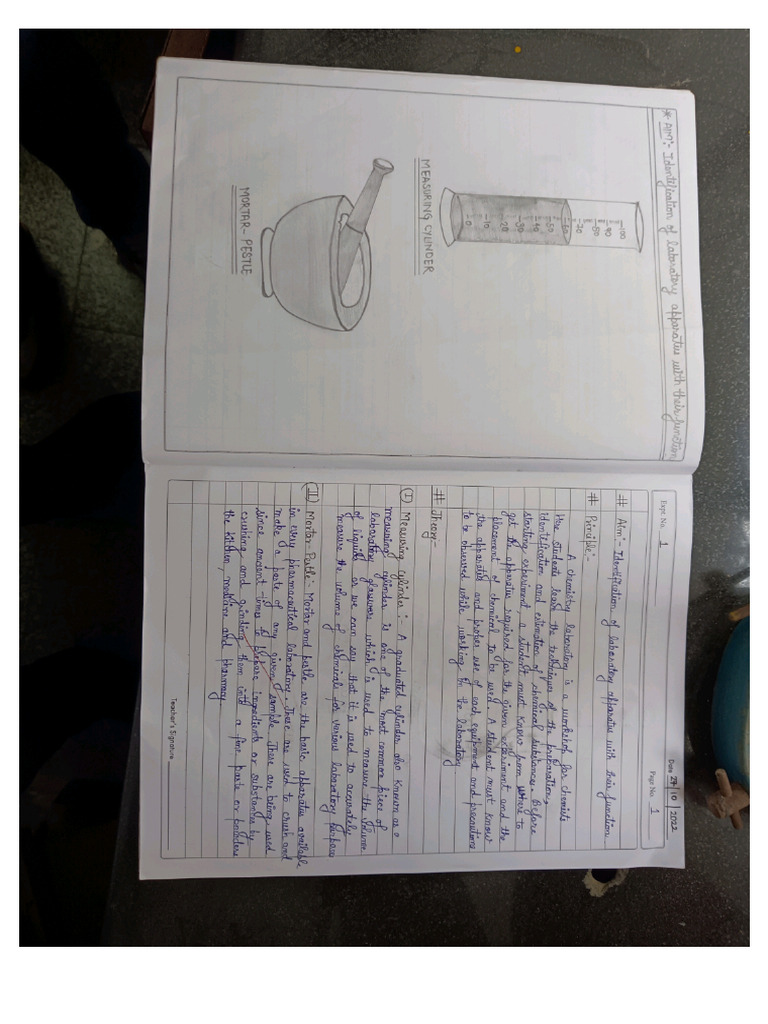 * AIM:- Identification of laboratory apparatus with their function
-100
-90
-80
-70
-60
-50
-40
-30
-20
-10
-0
MEASURING CYLINDER
MORTAR- PESTLE
Expt. No. 1
Date 27/10/2022
Page No. 1
# Aim:- Identification of laboratory apparatus with their function
# Principle:-
A chemistry laboratory is a workshop for chemists
Here students learn the techniques of the preparations,
Identification and estimation of chemical substances. Before
starting experiment a student must know from where to
get the apparatus required for the given experiment and the
placement of chemical to be used. A student must know
the apparatus and proper use of each equipment and precautions
to be observed while working in the laboratory
# Theory-
(I) Measuring cylinder :- A graduated cylinder also known as a
measuring cylinder is one of the most common piece of
laboratory glassware which is used to measure the volume
of liquids or we can say that it is used to accurately
measure the volume of chemicals for various laboratory purpose
(II) Mortar Pestle:- Mortar and pestle are the basic apparatus available
in every pharmaceutical laboratory. These are used to crush and
make a paste of any given sample. These are being used
since ancient times to prepare ingredients or substances by
crushing and grinding them into a fine paste or powders
the kitchen, medicine and pharmacy
Teacher's Signature